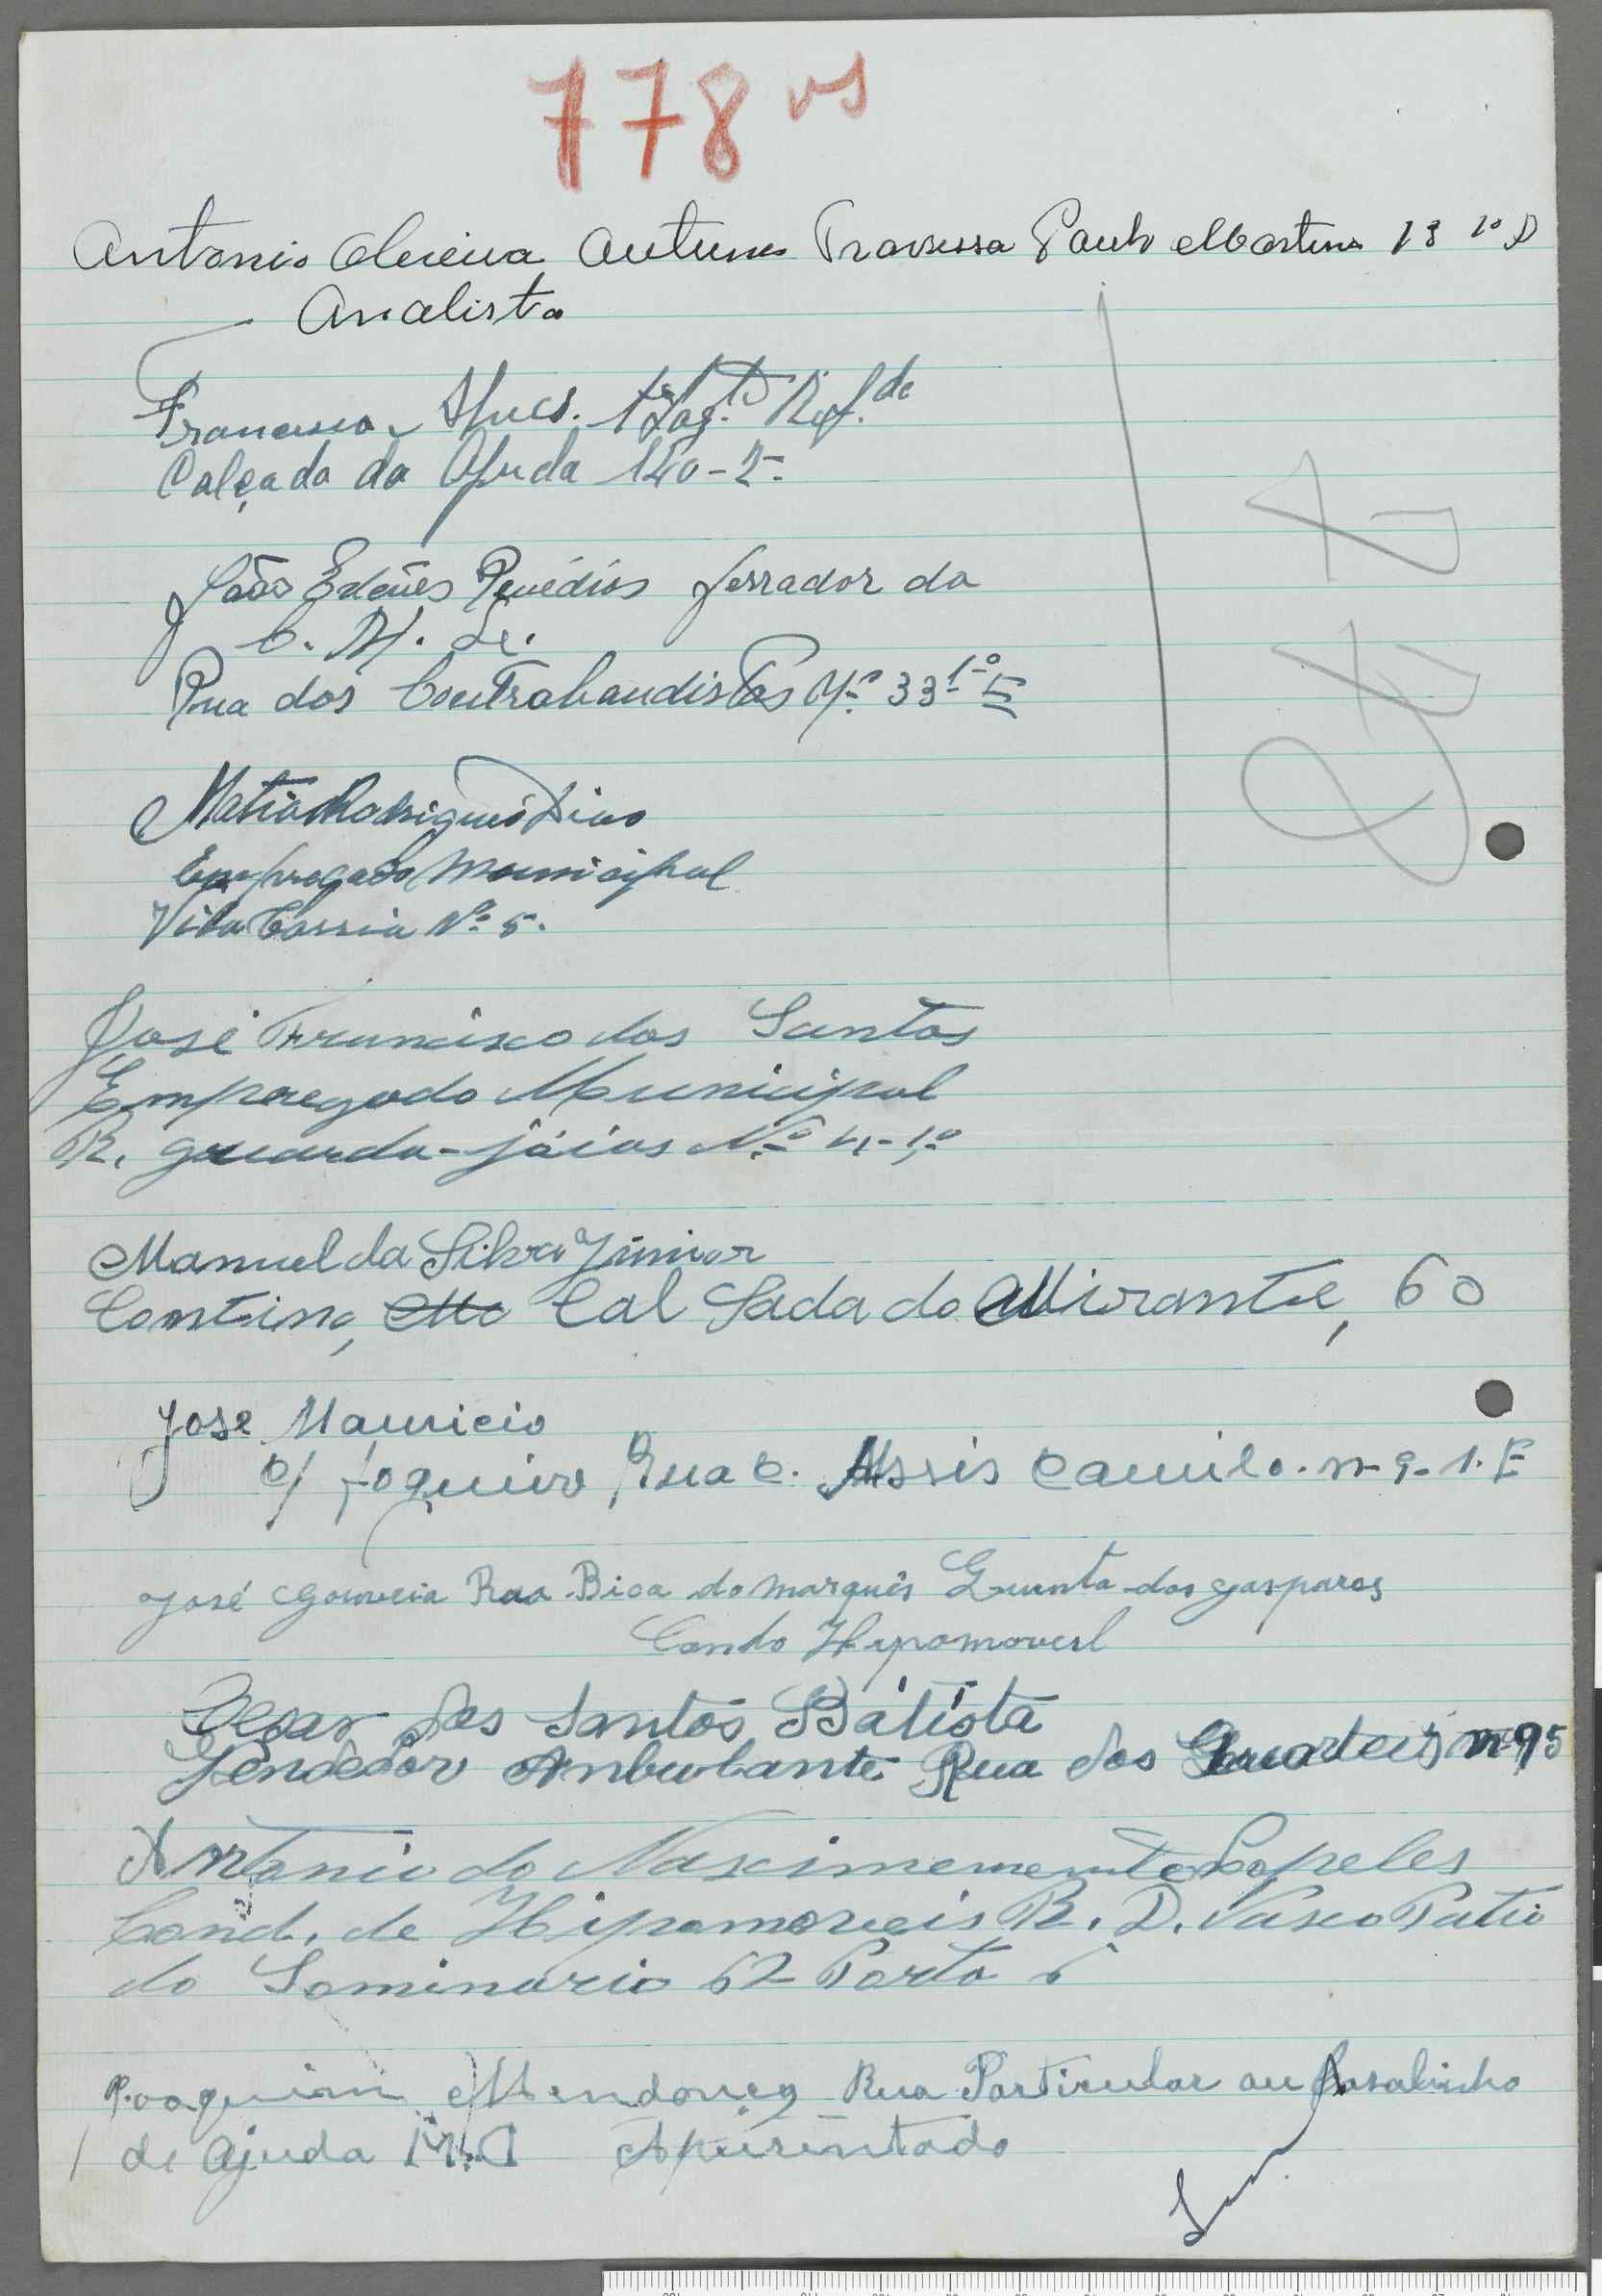 778 vs
Antonio Oliveira Antunes Travessa Paulo Martins 13 1º D
Analista
Francisco Alves. 1º Sag.to Ref.do
Calçada da Ajuda 140-2º
João Esteves Remédios ferrador da
C. M. L.
Rua dos Contrabandistas Nº 33 1º E
Matias Rodrigues Dias
Empregado Municipal
Vila Correia Nº 5.
José Francisco dos Santos
Empregado Municipal
R. guarda-jóias Nº 4-1º
Manuel da Silva Júnior
Contino, Cal Sada do Mirante, 60
Jose Mauricio
c/ foqueiro, Rua C. Assis Camilo. n-9-1. E
José Gouveia Rua Bica do marquês Quinta dos gaspares
Condo Hypomovel
Cesar dos Santos Batista
Vendedor Anbulante Rua dos Quarteis nº 95
Antonio do Nascimemento Lopeles
Cond. de Hipomoveis R. D. Vasco Patio
do Seminario 62 Porta 6
Joaquim Mendonça Rua Particular au Casalinho
de Ajuda M.D Apusentado